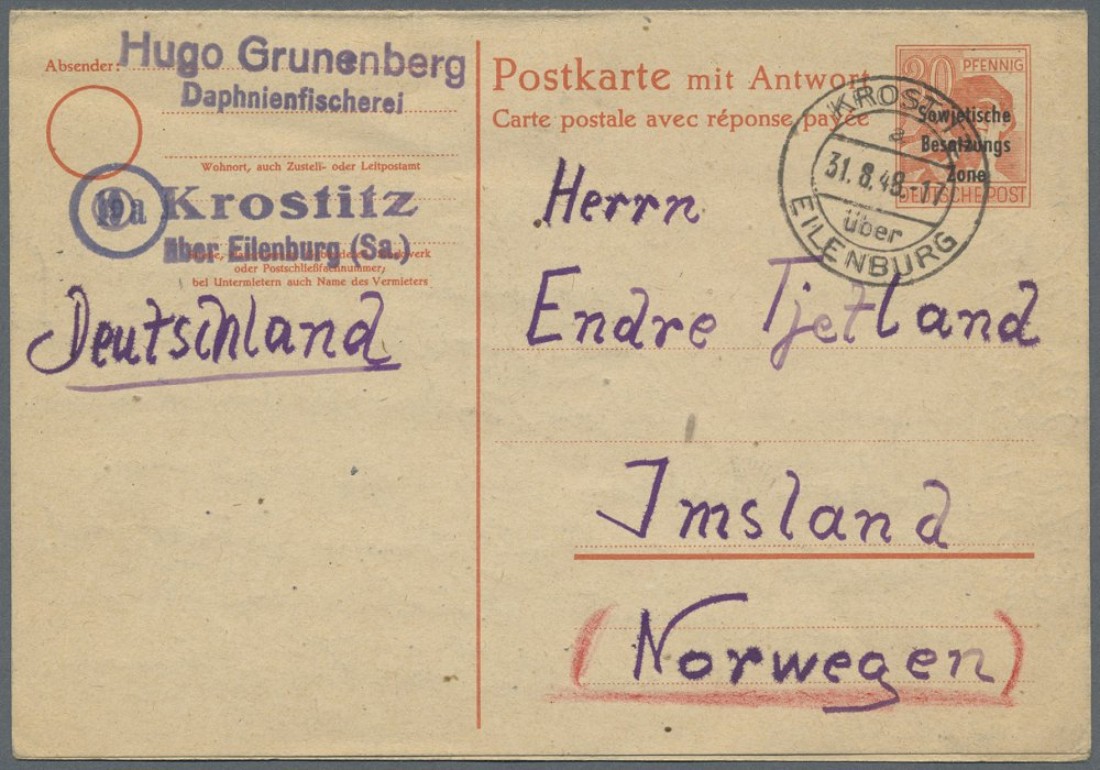 Absender: Hugo Grunenberg
Daphnienfischerei
Wohnort, auch Zustell- oder Leitpostamt
19a Krostitz
über Eilenburg (Sa.)
oder Postschließfachnummer;
bei Untermietern auch Name des Vermieters
Deutschland
Postkarte mit Antwort
Carte postale avec réponse payée
PFENNIG
Sowjetische
Besatzungs
Zone
DEUTSCHE POST
KROSTITZ
a
31.8.48.-17
über
EILENBURG
Herrn
Endre Tjetland
Imsland
(Norwegen)